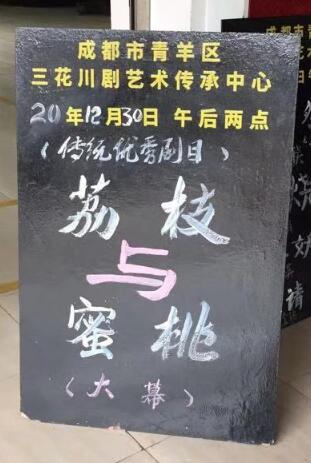 成都市青羊区
三花川剧艺术传承中心
20年12月30日 午后两点
(传统优秀剧目)
荔枝
与
蜜桃
(大幕)
成都市青
三花
请